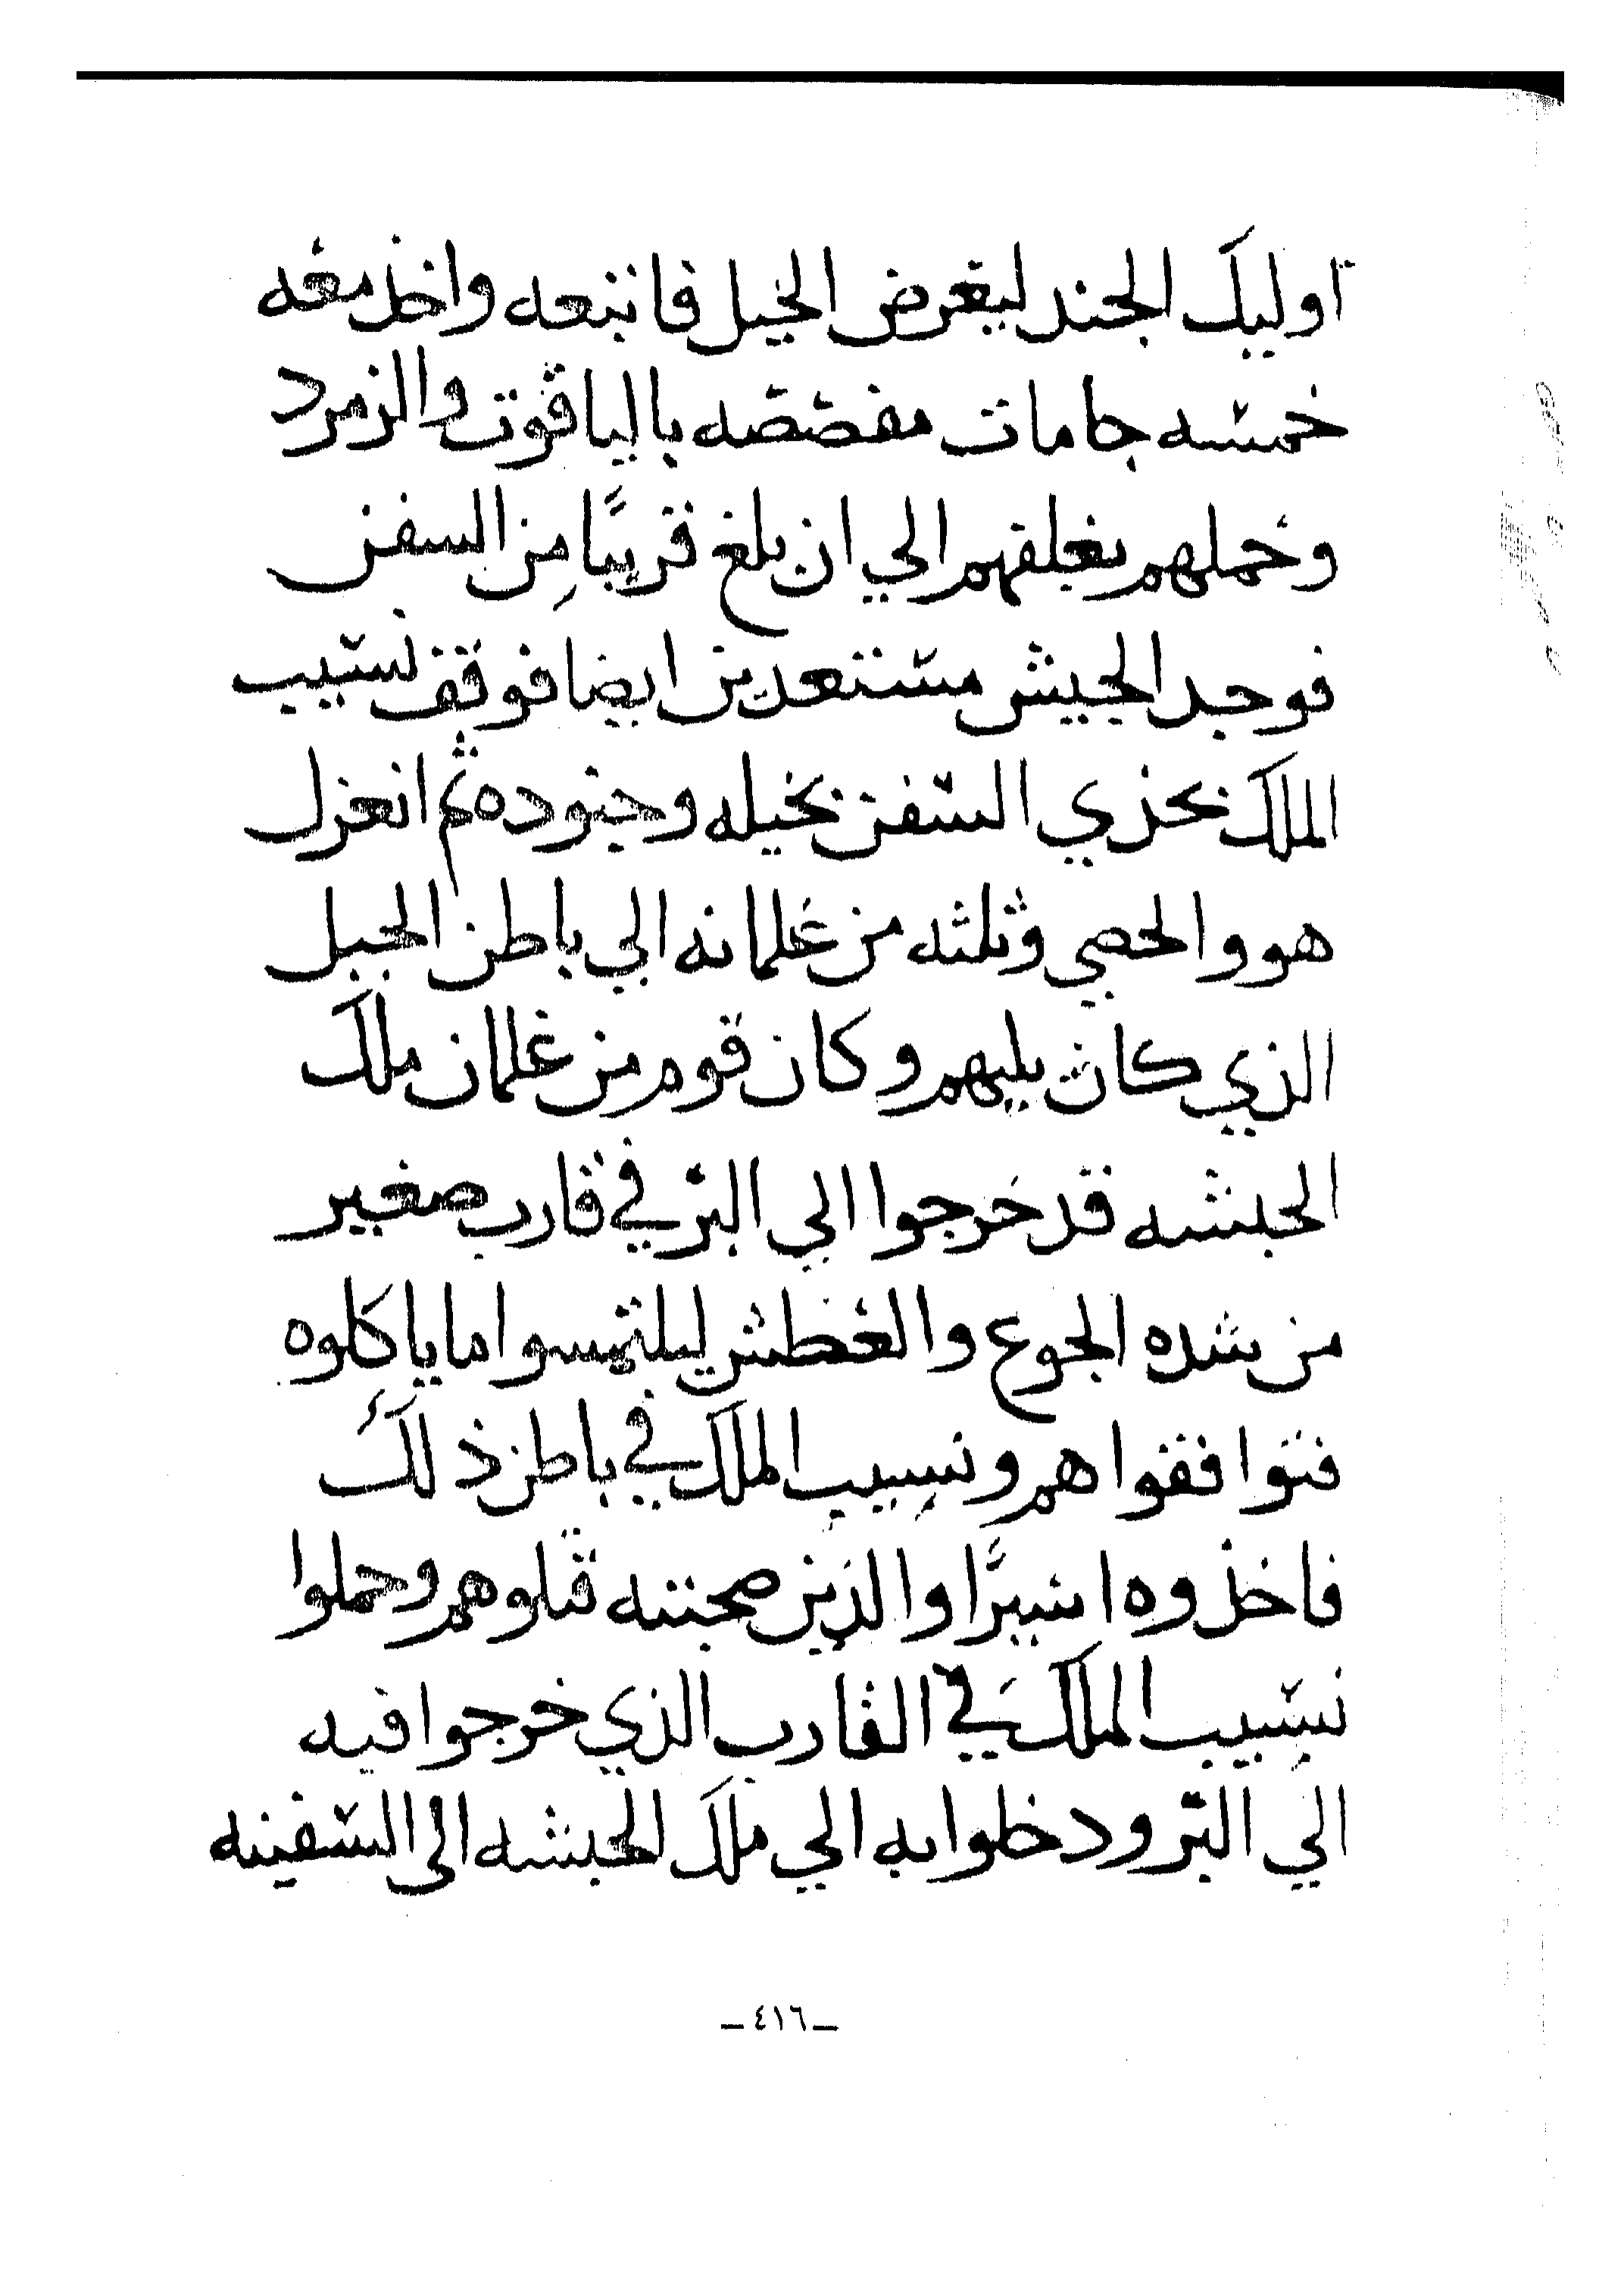 اوليك الجند ليعرض الخيل فاتبعه واخذ معه
خمسه جامات مفصصه بالياقوت والزمرد
وحملهم بغلفهم الي ان بلغ قريبًا مِن السفن
فوجد الجيش مستعدين ايضا فوقف نسيب
الملك بحذي السفن بخيله وجنوده ثم انعزل
هو والخصي وثلثه من غلمانه الي باطن الجبل
الذي كان يليهم وكان قوم من غلمان ملك
الحبشه قد خرجوا الي البر في قارب صغير
من شده الجوع والعطش ليلتمسوا ما ياكلوه
فتوافقوا هم ونسيب الملك في باطن ذلك
فاخذوه اسيرًا والذين صحبته قتلوهم وحملوا
نسيب الملك في القارب الذي خرجوا فيه
الي البر ودخلوا به الي ملك الحبشه الى السفينه
ــ٤١٦ــ